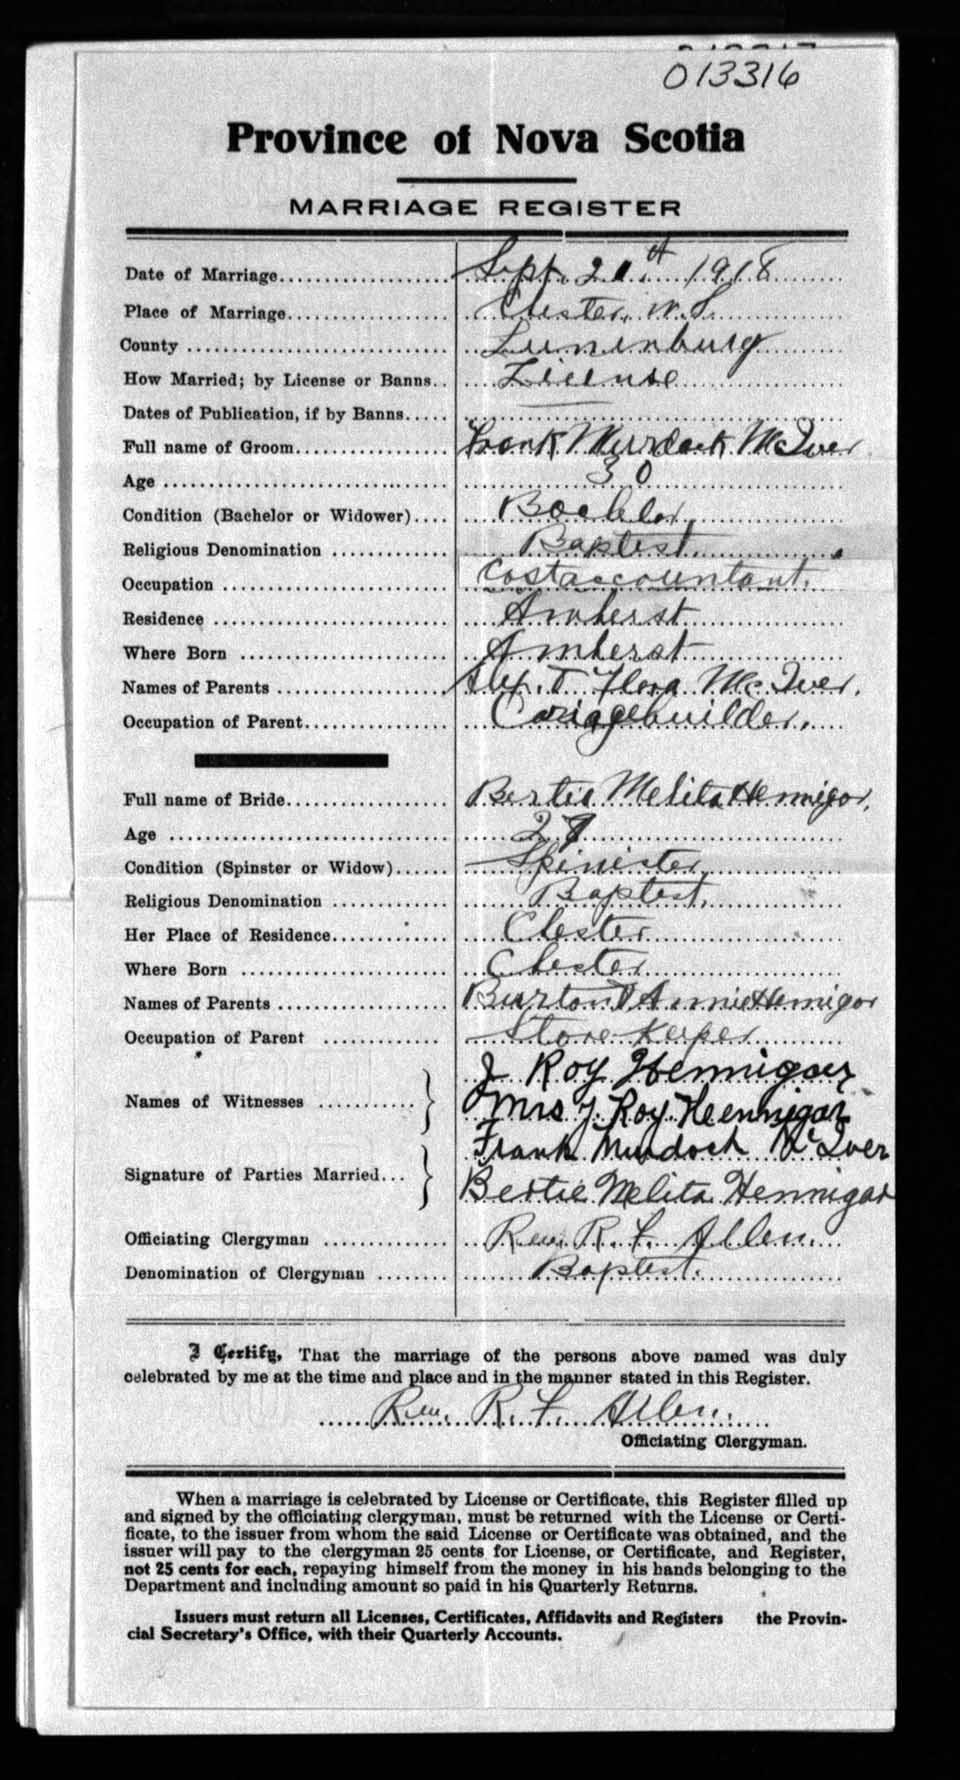 013316
Province of Nova Scotia
MARRIAGE REGISTER
Date of Marriage Sept. 21st 1918
Place of Marriage Chester, N.S.
County Lunenburg
How Married; by License or Banns License
Dates of Publication, if by Banns
Full name of Groom Frank Murdock McIver
Age 30
Condition (Bachelor or Widower) Bachelor
Religious Denomination Baptist
Occupation Cost accountant.
Residence Amherst
Where Born Amherst
Names of Parents Alex. T Flora McIver.
Occupation of Parent Cariagebuilder.
Full name of Bride Bertie Melita Hennigar,
Age 27
Condition (Spinster or Widow) Spinister
Religious Denomination Baptist.
Her Place of Residence Chester
Where Born Chester
Names of Parents Burton T. Annie Hennigar
Occupation of Parent Store Keeper
J Roy Hennigar
Names of Witnesses } Mrs J. Roy Hennigar
Frank Murdoch McIver
Signature of Parties Married } Bertie Melita Hennigar
Officiating Clergyman Rev. R. F. Allen.
Denomination of Clergyman Baptist.
I Certify, That the marriage of the persons above named was duly
celebrated by me at the time and place and in the manner stated in this Register.
Rev. R. F. Allen.
Officiating Clergyman.
When a marriage is celebrated by License or Certificate, this Register filled up
and signed by the officiating clergyman, must be returned with the License or Certi-
ficate, to the issuer from whom the said License or Certificate was obtained, and the
issuer will pay to the clergyman 25 cents for License, or Certificate, and Register,
not 25 cents for each, repaying himself from the money in his hands belonging to the
Department and including amount so paid in his Quarterly Returns.
Issuers must return all Licenses, Certificates, Affidavits and Registers the Provin-
cial Secretary's Office, with their Quarterly Accounts.